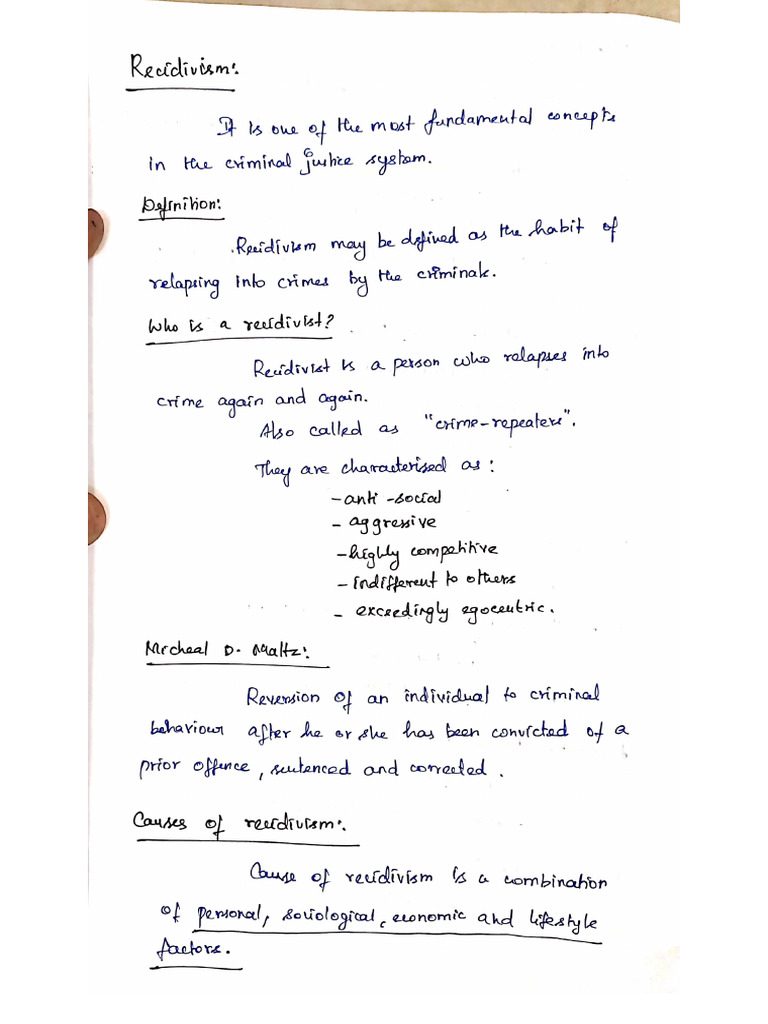 Recidivism:
It is one of the most fundamental concepts
in the criminal justice system.
Definition:
Recidivism may be defined as the habit of
relapsing into crimes by the criminals.
Who is a recidivist?
Recidivist is a person who relapses into
crime again and again.
Also called as "crime-repeaters".
They are characterised as:
- anti-social
- aggressive
- highly competitive
- indifferent to others
- exceedingly egocentric.
Micheal D. Maltz:
Reversion of an individual to criminal
behaviour after he or she has been convicted of a
prior offence, sentenced and corrected.
Causes of recidivism:
Cause of recidivism is a combination
of personal, sociological, economic and lifestyle
factors.